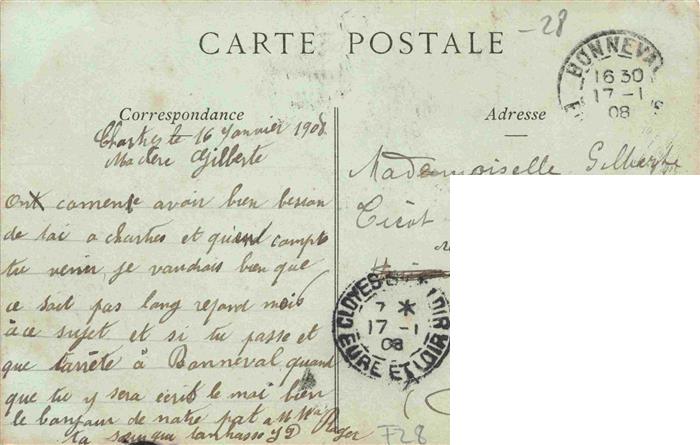 CARTE POSTALE
-28
BONNEVAL
16 30
17 -1
08
E
Correspondance
Adresse
Chartres le 16 Janvier 1908
Ma chere Gilberte
Ont comence avoir bien besoin
de toi a chartres et quand compte
tu venir, je vandrais bien que
ce sait pas long repond mois
à ce sujet et si tu passe et
que t'arrête à Bonneval quand
que tu y sera écrit le moi bien
le bonjour de notre part a
ta
Mademoiselle Gilberte
CLOYES-S- * LOIR
7 *
17 -1
08
EURE ET LOIR
F28